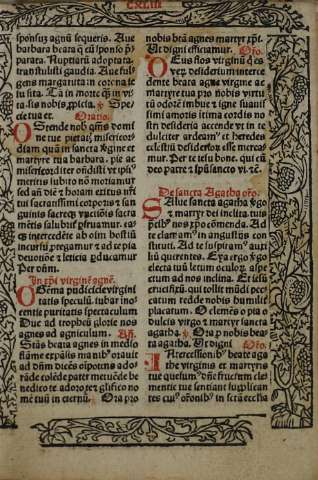 CXLIII
sponsuʒ agnū sequeris. Aue
barbara beata q̄ cū sponso p̄
parata. Nuptiarū adoptata
transtulisti gaudia. Aue ful-
gens margarita in corona ie
su sita. Tā in morte q̄ in vi
ta sis nobis ꝓpicia. Spe
cie tua et. Oratio.
OStende nob̄ q̄s domi
ne tue pietatis misericor
diam quā in sancta v̄gine et
martyre tua barbara. pie ac
misericorditer ondisti vt ipsiꝰ
meritis subito nō moriamur
sed añ diē ⁊ horam exitus nr̄i
tui sacratissimi corporis ⁊ sā
guinis sacreqꝫ vnctiōis sacra
mētis salubit̓ ꝑfruamur. eiꝰ
qꝫ intercedēte ab oīm hostiū
incursu ꝑtegamur ⁊ ad copiā
deuotiōe ⁊ leticia ꝑducamur
Per dn̄m.
In xp̄i virginē agnē.
OGema pudicicie virgini
tatis speculū. iubar ino
centie puritatis spectaculum
Duc ad trophei glorie nos
agnes ad agniculum. Añ.
Stās beata agnes in medio
flāme expāsis manibꝰ orauit
ad dn̄m dicēs oīpotens ado
rāde colēde pater metuēde be
nedico te adoro te ⁊ glifico no
mē tuū in eternū. Ora pro
nobis btā agnes martyr xp̄i.
Ut digni efficiamur. Oro.
DEus flos virginū q̄ es
vere. desiderium interce
dente beata agne virgine ac
martyre tua pro nobis virtu
tū odorē imbue ⁊ igne suauis
simi amoris itima cordis no
stri desideria accende vt in te
dulciter ardeam̄ et heredes
celestiū desideriorꝫ esse merea
mur. Per te iesu bone. qui cū
deo patre ⁊ spū sancto vi. ⁊c.
De sancta Agatha oro.
SAlue sancta agatha v̓go
⁊ martyr dei inclita. tuis
p̄cibꝰ nos xp̄o cōmenda. Ad
te clamamꝰ in angustijs con
stituti. Ad te suspiramꝰ auxi
liū querentes. Exa ergo v̓go
electa tuū letum oculorꝫ aspe
ctum ad nos inclina. Et iesū
crucifixū qui tollit mūdi pec
catum redde nobis humili
placatum. O clemēs o pia o
dulcis virgo ⁊ martyr sancta
agatha. Ora ꝓ nobis bea
ta agatha. Ut digni Oro.
INtercessionibꝰ beate aga
the virginis et martyris
tue quesumꝰ dn̄e fructum cle
mentie tue sentiant supplican
tes eiꝰ orōnibꝰ in sctā ecclia